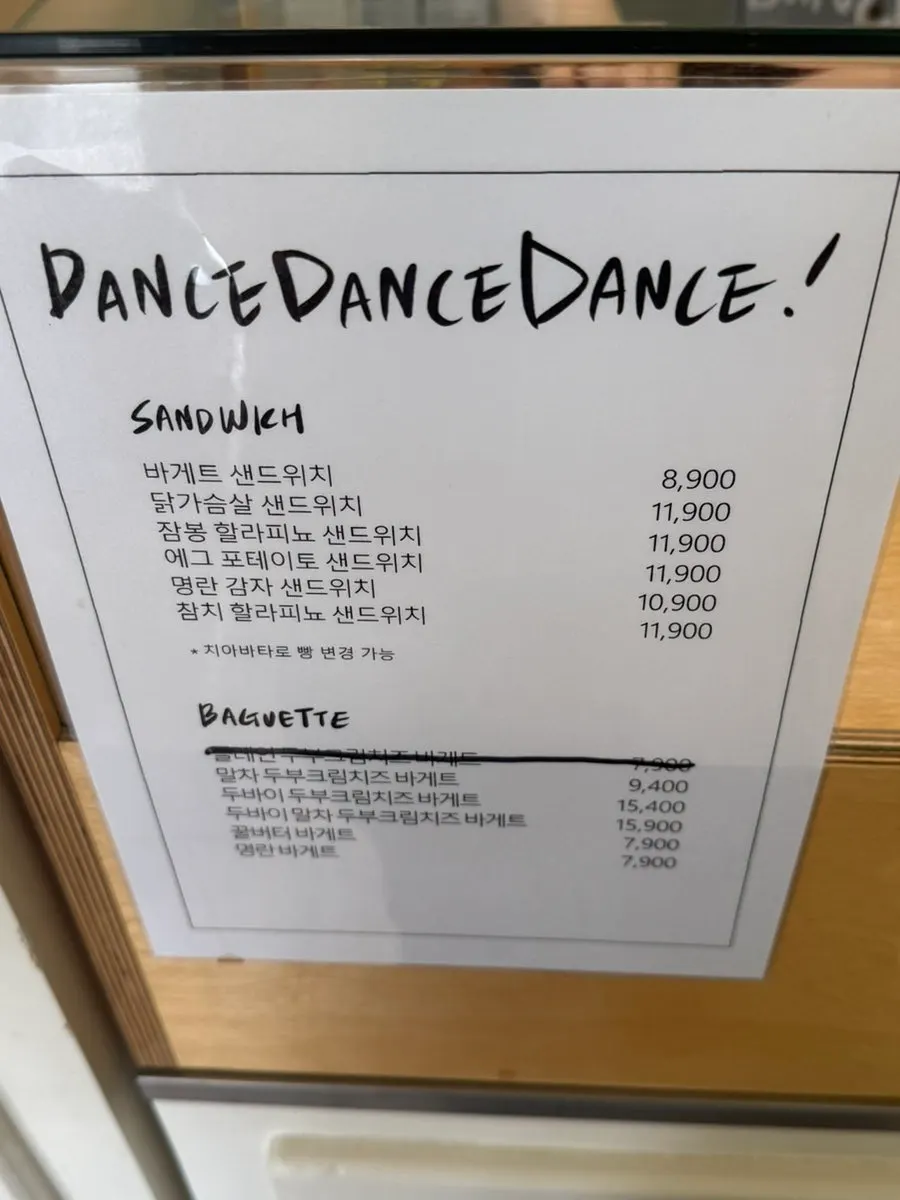 DANCE DANCE DANCE!
SANDWICH
바게트 샌드위치 8,900
닭가슴살 샌드위치 11,900
잠봉 할라피뇨 샌드위치 11,900
에그 포테이토 샌드위치 11,900
명란 감자 샌드위치 10,900
참치 할라피뇨 샌드위치 11,900
* 치아바타로 빵 변경 가능
BAGUETTE
플레인 두부크림치즈 바게트 7,900
말차 두부크림치즈 바게트 9,400
두바이 두부크림치즈 바게트 15,400
두바이 말차 두부크림치즈 바게트 15,900
꿀버터 바게트 7,900
명란 바게트 7,900